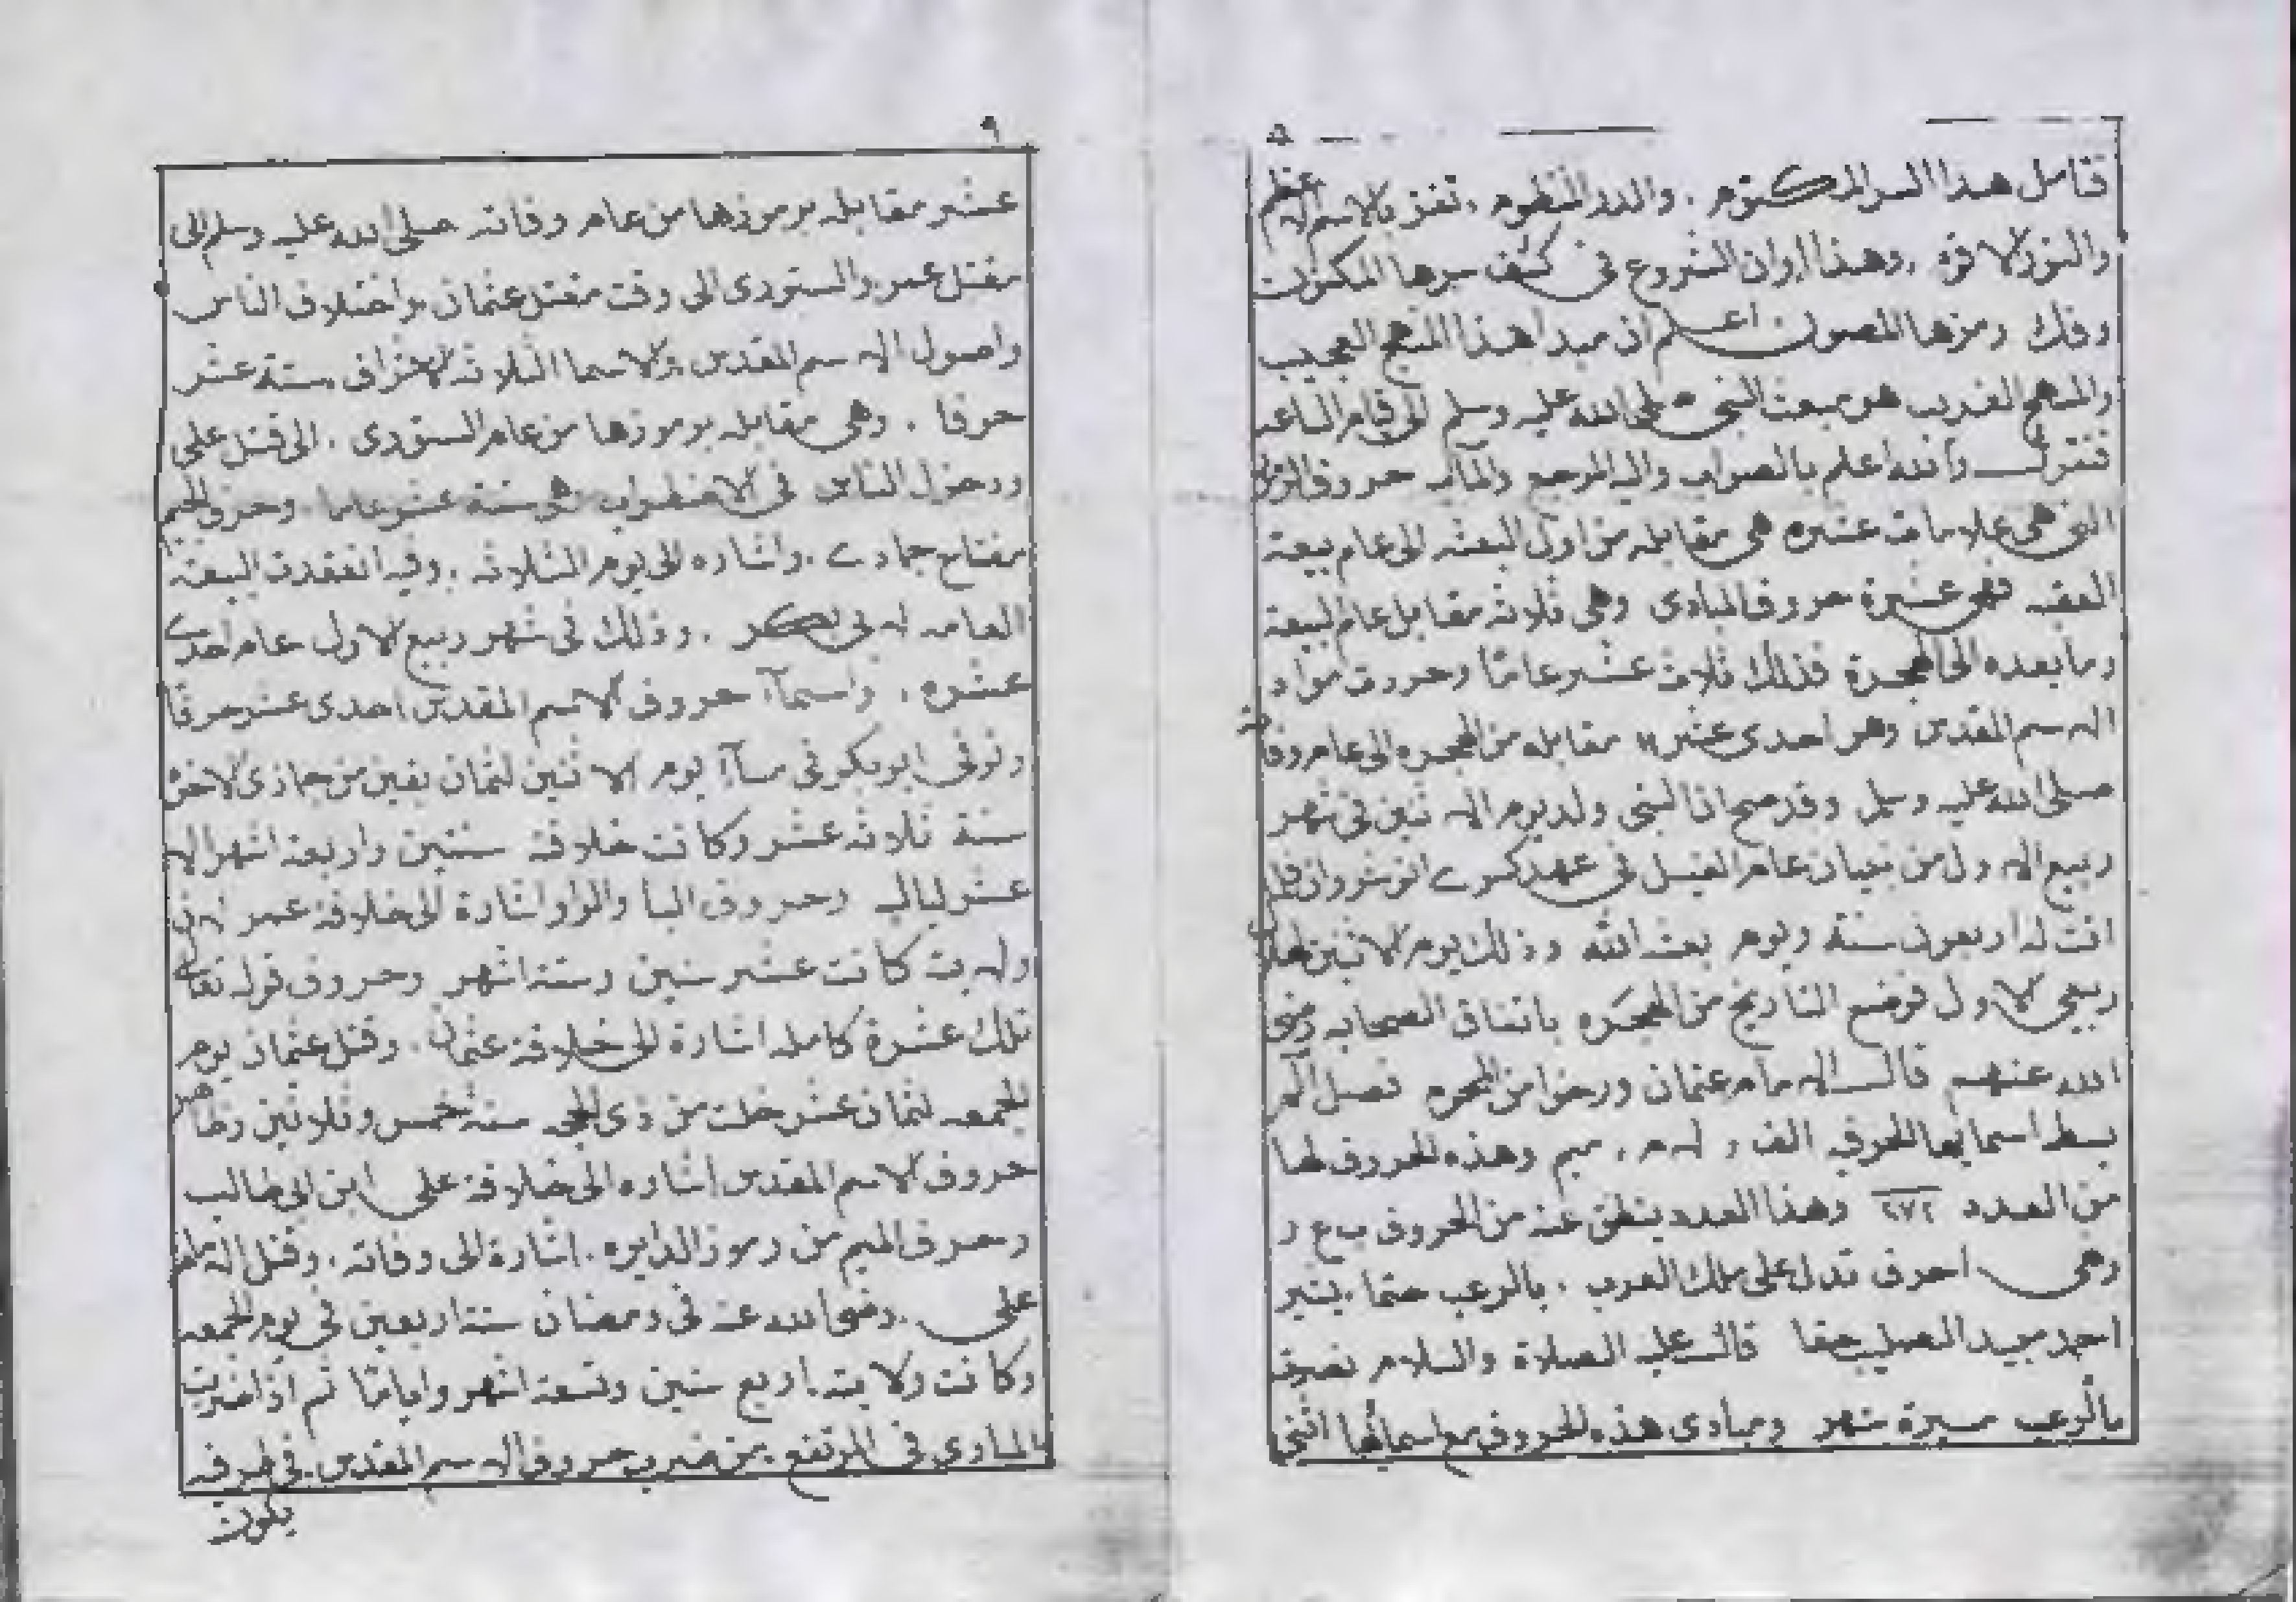 فتامل هذا السر المكتوم . والدر المنظوم . تفز بالاسم الاعظم
والنور الاقوم . وهذا اوان الشروع في كشف سرها المكنون
وفك رمزها المصون . اعلم ان مبدا هذا المنهج العجيب
والمنهج الغريب هو مبعث النبي صلى الله عليه وسلم الى قيام الساعه
فنقول والله اعلم بالصواب واليه المرجع والماب حروف
التي هي علامات عشره هي مقابله من اول البعثه الى عام بيعة
العقبه فهي عشرة حروف المبادى وهي ثلاثه مقابل عام البيعة
وما بعده الى الهجرة فذلك ثلاث عشر عامًا وحروف مواد
الاسم المقدس وهو احدى عشر ١١ مقابله من الهجره الى عام وفاته
صلى الله عليه وسلم وقد صح ان النبي ولد يوم الاثنين في شهر
ربيع الاول من عام الفيل في عهد كسرى انوشروان فلما
اتت له اربعون سنة ويوم بعثه الله وذلك يوم الاثنين
ربيع الاول فوضع التاريخ من الهجره باتفاق الصحابه رضي
الله عنهم قال الامام عثمان ورخوا من المحرم فصل الم
بسط اسمايها الحرفي الف ، لام ، ميم وهذه الحروف لها
من العدد ٢٧٢ وهذا العدد ينطق عنه من الحروف ب ع ر
وهي احرف تدل على ملك العرب . بالرعب حتما . يشير
احمد مبيد الصليب حقا قال عليه الصلاة والسلام نصرت
بالرعب مسيرة شهر ومبادى هذه الحروف مع اسمائها اثنى
٩
عشر مقابله برموزها من عام وفاته صلى الله عليه وسلم الى
مقتل عمر والشورى الى وقت مقتل عثمان واختلاف الناس
واصول الاسم المقدس والاسما الثلاثه ستة عشر
حرفا . وهي مقابله برموزها من عام الشورى . الى قتل علي
ودخول الناس في الاضطراب وهي ستة عشر عاما . وحرف الجيم
مفتاح جمادى . واشاره الى يوم الثلاثه . وفيه انعقدت البيعة
العامه لابي بكر . وذلك في شهر ربيع الاول عام احدى
عشره . واسماآ حروف الاسم المقدس احدى عشر حرفًا
وتوفي ابو بكر في مسآء يوم الاثنين لثمان بقين من جمادى الاخرى
سنة ثلاثه عشر وكانت خلافته سنتين واربعة اشهر الا
عشر ليال وحروف اليا والواو اشارة الى خلافة عمر لان
ولايته كانت عشر سنين وستة اشهر وحروف قوله تعالى
تلك عشرة كامله اشارة الى خلافة عثمان . وقتل عثمان يوم
الجمعه لثمان عشر خلت من ذي الحجه سنة خمس وثلاثين وظاهر
حروف الاسم المقدس اشاره الى خلافة علي ابن ابي طالب
وحرف الميم من رموز الدايره . اشارة الى وفاته . وقتل الامام
علي . رضي الله عنه في رمضان سنة اربعين في يوم الجمعه
وكانت ولايته . اربع سنين وتسعة اشهر وايامًا ثم اذا ضربت
المبادى في المرتفع . من ضرب حروف الاسم المقدس . في طرفه
يكون